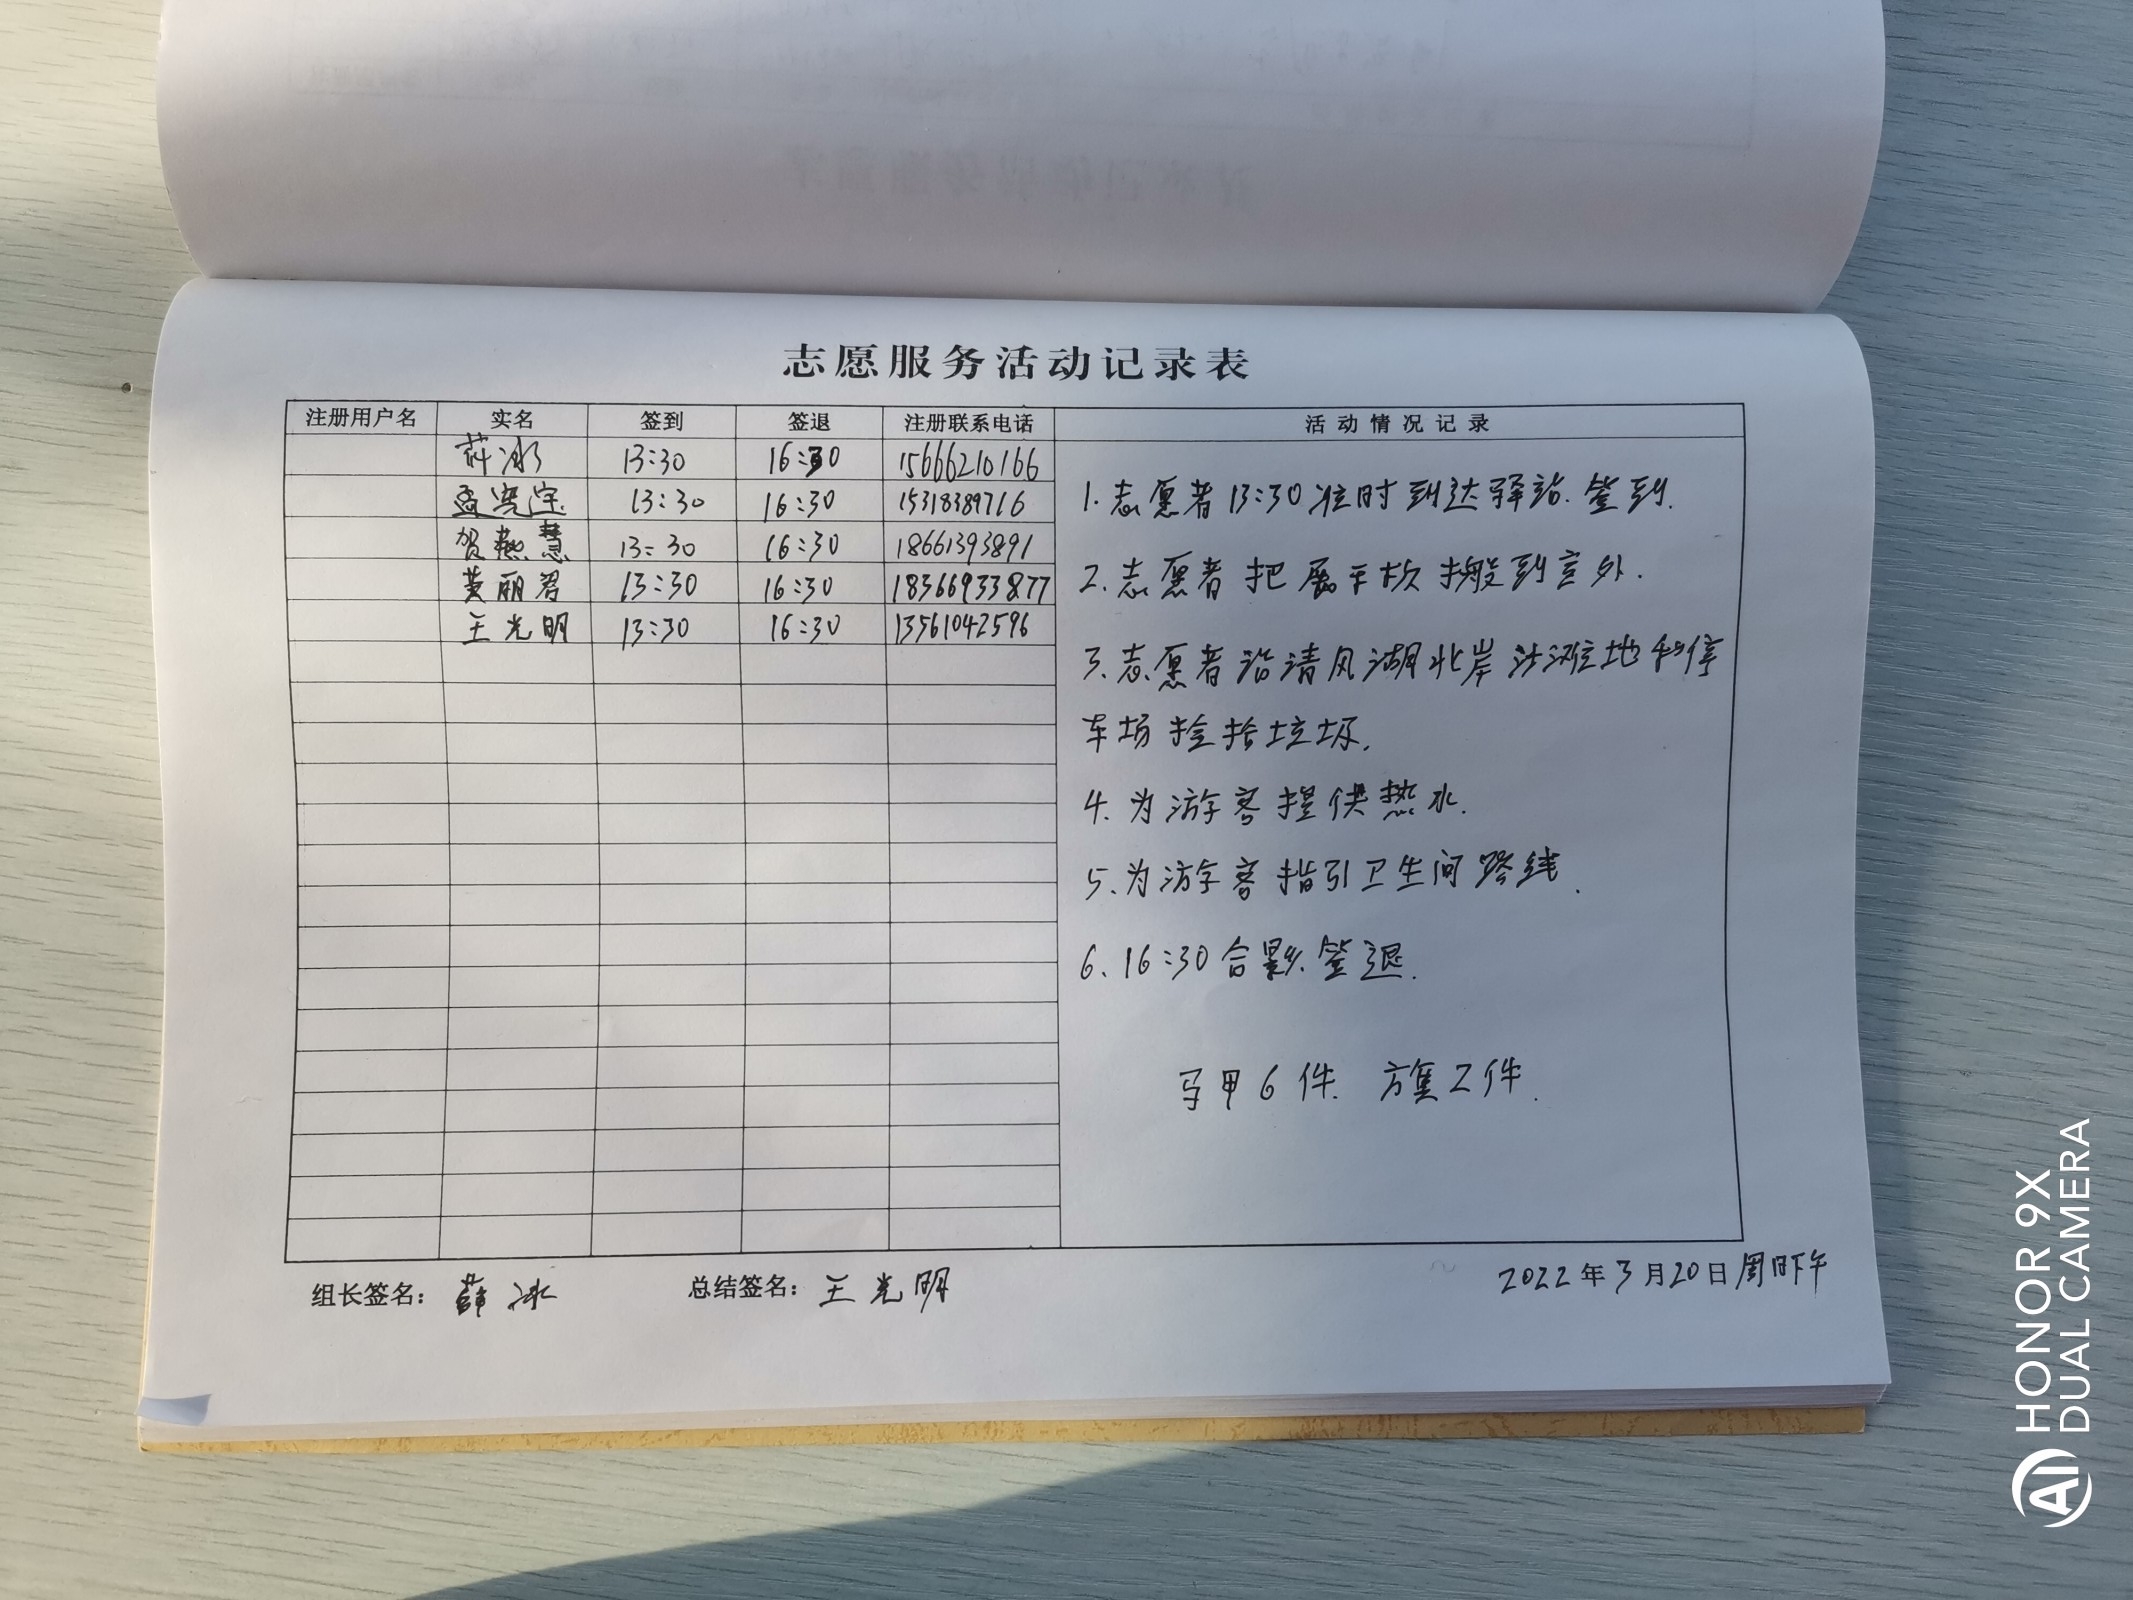 志愿服务活动记录表
注册用户名 实名 签到 签退 注册联系电话 活动情况记录
薛冰 13:30 16:30 15666210166
孟宪宝 13:30 16:30 15318389716
贺燕慧 13:30 16:30 18661393891
黄丽君 13:30 16:30 18366933877
王光明 13:30 16:30 13561042596
1.志愿者13:30准时到达驿站.签到.
2.志愿者把展示板搬到室外.
3.志愿者沿清风湖北岸沙滩地和停
车场捡拾垃圾.
4.为游客提供热水.
5.为游客指引卫生间路线.
6.16:30合影.签退.
马甲6件.方集2件.
组长签名：薛冰 总结签名：王光明 2022年3月20日周日下午
HONOR 9X
AI DUAL CAMERA